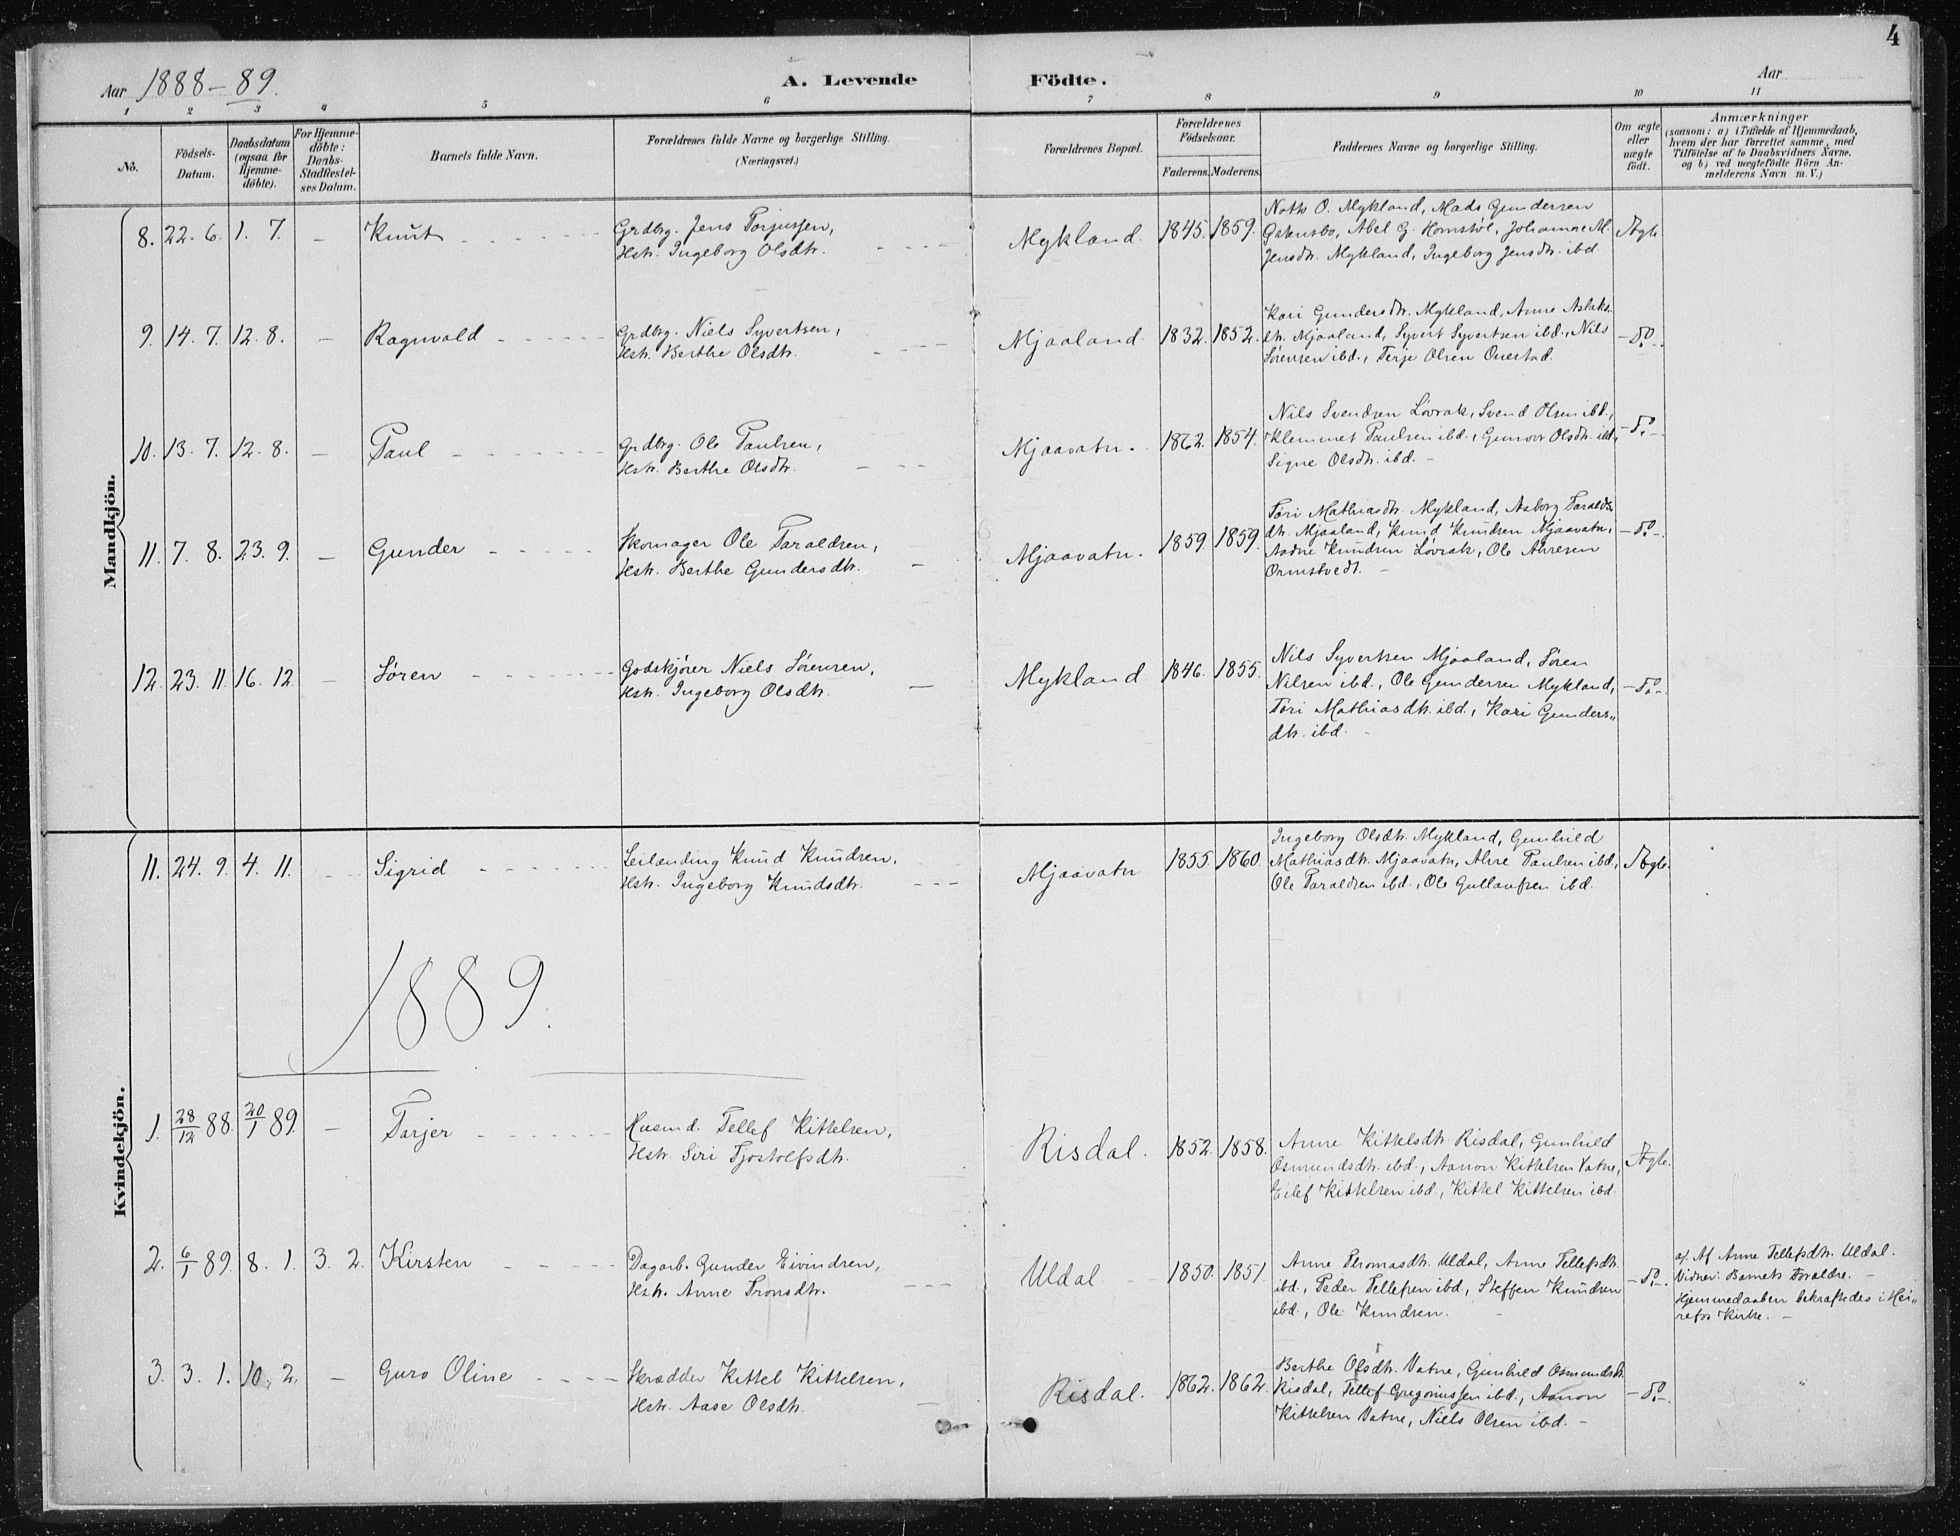 4
Aar 1888-89.
A. Levende Födte.
Aar
1 2 3 4 5 6 7 8 9 10 11
No.
Födsels-Datum.
Daabsdatum (ogsaa for Hjemme-döbte).
For Hjemme-döbte: Daabs-Stadfæstel-ses Datum.
Barnets fulde Navn.
Forældrenes fulde Navne og borgerlige Stilling.
(Næringsvei.)
Forældrenes Bopæl.
Forældrenes Födselsaar.
Faderens. Moderens.
Faddernes Navne og borgerlige Stilling.
Om ægte eller uægte födt.
Anmærkninger
(saasom: a) i Tilfælde af Hjemmedaab,
hvem der har forrettet samme, med
Tilföielse af to Daabsvidners Navne.
og b) ved uegtefödte Börn An-
melderens Navn m. V.)
Mandkjön.
8. 22. 6. 1. 7. - Knut
Grdbr. Jens Torjussen,
Hstr. Ingeborg Olsdtr.
Mykland. 1845. 1859.
Noth O. Mykland, Mads Gundersen
Abel G. Homstøl, Johanne M.
Jensdtr. Mykland, Ingeborg Jensdtr. ibd.
Ægte.
9. 14. 7. 12. 8. - Ragnvald
Grdbr. Niels Syvertsen,
Hstr. Berthe Olsdtr.
Mjaaland. 1832. 1852.
Kari Gundersdtr. Mykland, Anne Aslaks-
dtr. Mjaaland, Syvert Syvertsen ibd., Nils
Sørensen ibd., Terje Olsen
- do -
10. 13. 7. 12. 8. - Paul
Grdbr. Ole Paulsen,
Hstr. Berthe Olsdtr.
Mjaavatn. 1862. 1854.
Nils Svendsen Løvrak, Svend Olsen ibd.,
Klemmet Paulsen ibd., Gunvor Olsdtr. ibd.,
Signe Olsdtr. ibd.
- do -
11. 7. 8. 23. 9. - Gunder
Skomager Ole Taraldsen,
Hstr. Berthe Gundersdtr.
Mjaavatn. 1859. 1859.
Tøri Mathiasdtr. Mykland, Asborg Taralds-
dtr. Mjaaland, Knud Knudsen Mjaavatn,
Aadne Knudsen Løvrak, Ole
Ormstvedt.
- do -
12. 23. 11. 16. 12. - Søren
Godskjører Niels Sørensen,
Hstr. Ingeborg Olsdtr.
Mykland 1846. 1855.
Nils Syvertsen Mjaaland, Søren
Nilsen ibd., Ole Gundersen Mykland,
Tøri Mathiasdtr. ibd., Kari Gunders-
dtr. ibd.
- do -
Kvindekjön.
11. 24. 9. 4. 11. Sigrid
Leilænding Knud Knudsen,
Hstr. Ingeborg Knudsdtr.
Mjaavatn 1855 1860.
Ingeborg Olsdtr. Mykland, Gunhild
Mathiasdtr. Mjaavatn, Paulsen ibd.,
Ole Taraldsen ibd., Ole Gullaufsen ibd.
Ægte.
1889.
1. 28/12 88. 20/1 89. - Torjer
Husmd. Tellef Kittelsen,
Hstr. Siri Tjostolfsdtr.
Risdal. 1852. 1858.
Anne Kittelsdtr. Risdal, Gunhild
Osmundsdtr. ibd., Aanon Kittelsen Vatne,
Eilef Kittelsen ibd., Kittel Kittelsen ibd.
Ægte.
2. 6/1 89. 8. 1. 3. 2. Kirsten
Dagarb. Gunder Eivindsen,
Hstr. Anne Tronsdtr.
Uldal 1850. 1851.
Anne Thomasdtr. Uldal, Anne Tellefsdtr.
ibd., Peder Tellefsen ibd., Steffen Knudsen
ibd., Ole Knudsen.
- do -
a). Af Anne Tellefsdtr. Uldal.
Vidner: Barnets Forældre.
Hjemmedaaben bekræftedes i Hei-
refos Kirke.
3. 3. 1. 10. 2. - Guro Oline
Skrædder Kittel Kittelsen,
Hstr. Aase Olsdtr.
Risdal. 1862. 1862.
Berthe Olsdtr. Vatne, Gunhild Osmundsdtr.
Risdal, Tellef Gregoriussen ibd., Aanon
Kittelsen Vatne, Niels Olsen ibd.
- do -